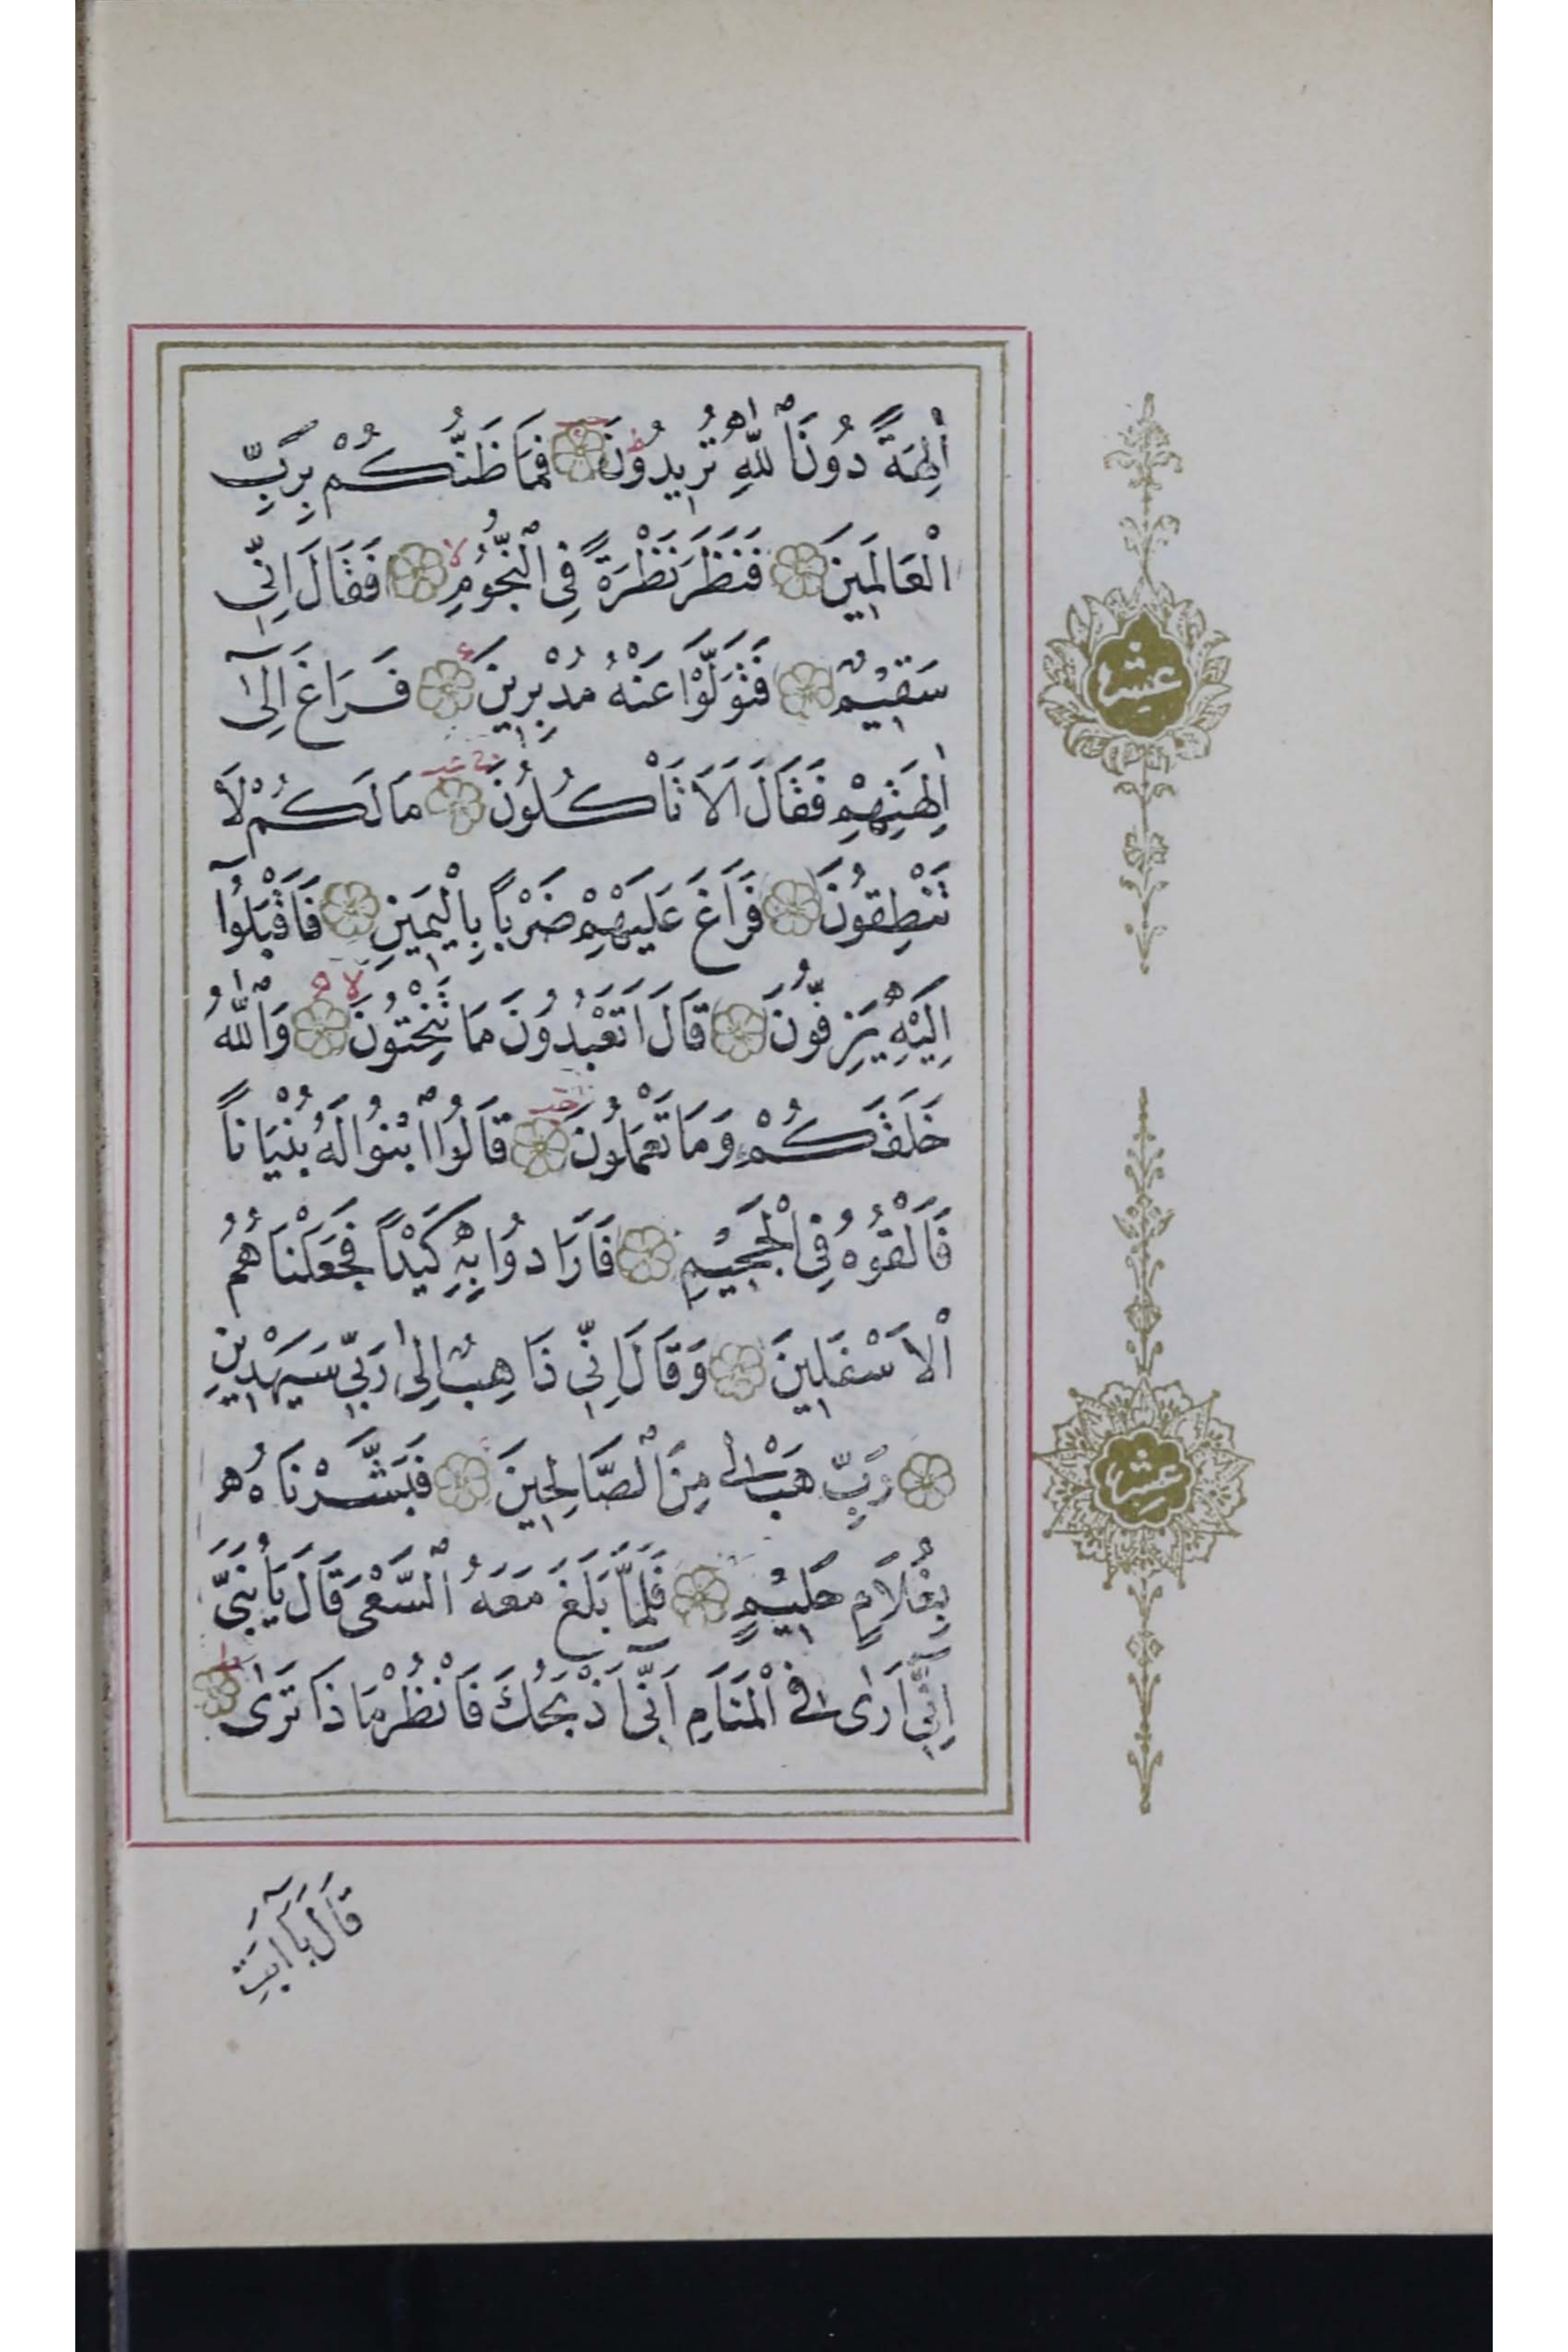 اٰلِهَةً دُونَ ٱللّٰهِ تُرِيدُونَ فَمَا ظَنُّكُمْ بِرَبِّ
الْعَالَمِينَ فَنَظَرَ نَظْرَةً فِي ٱلنُّجُومِ فَقَالَ اِنِّي
سَقِيمٌ فَتَوَلَّوْا عَنْهُ مُدْبِرِينَ فَرَاغَ اِلٰٓى
اٰلِهَتِهِمْ فَقَالَ اَلَا تَأْكُلُونَ مَا لَكُمْ لَا
تَنْطِقُونَ فَرَاغَ عَلَيْهِمْ ضَرْبًا بِالْيَمِينِ فَاَقْبَلُوٓا
اِلَيْهِ يَزِفُّونَ قَالَ اَتَعْبُدُونَ مَا تَنْحِتُونَ وَٱللّٰهُ
خَلَقَكُمْ وَمَا تَعْمَلُونَ قَالُوا ٱبْنُوا لَهُ بُنْيَانًا
فَاَلْقُوهُ فِي الْجَحِيمِ فَاَرَادُوا بِهِ كَيْدًا فَجَعَلْنَاهُمُ
الْاَسْفَلِينَ وَقَالَ اِنِّي ذَاهِبٌ اِلٰى رَبِّي سَيَهْدِينِ
رَبِّ هَبْ لِي مِنَ ٱلصَّالِحِينَ فَبَشَّرْنَاهُ
بِغُلَامٍ حَلِيمٍ فَلَمَّا بَلَغَ مَعَهُ ٱلسَّعْيَ قَالَ يَا بُنَيَّ
اِنِّٓي اَرٰى فِي الْمَنَامِ اَنِّٓي اَذْبَحُكَ فَانْظُرْ مَاذَا تَرٰى
قَالَ يَٓا اَبَتِ
عشر
عشر